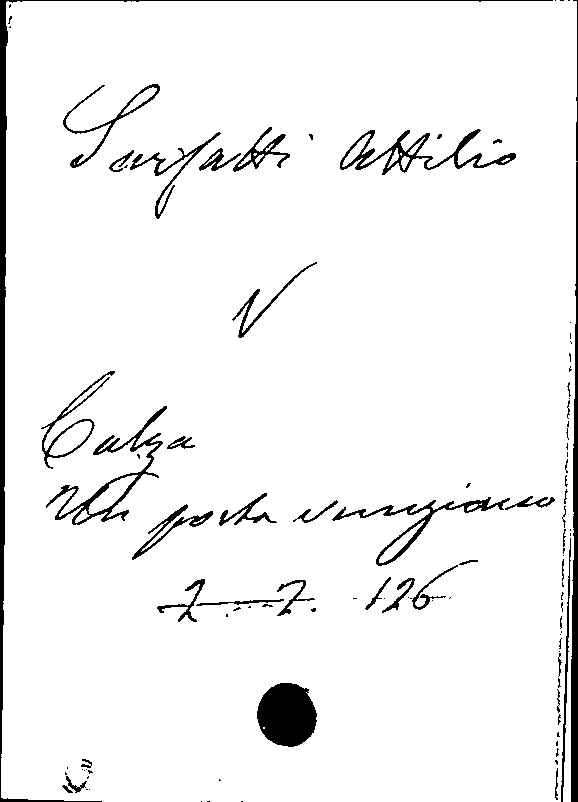 Sarfatti Attilio
V
Calza
Un poeta veneziano
Z — Z. 126